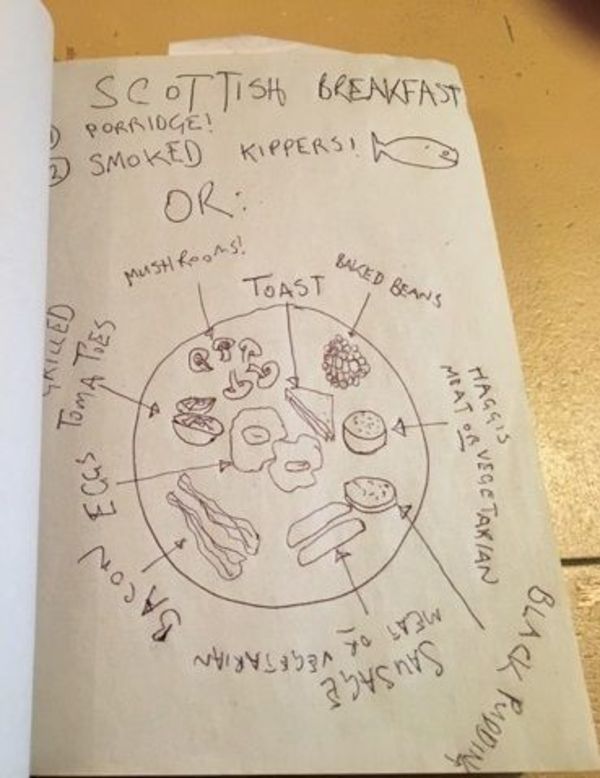 SCOTTISH BREAKFAST
1) PORRIDGE!
2) SMOKED KIPPERS!
OR:
MUSHROOMS!
TOAST
BAKED BEANS
GRILLED
TOMATOES
HAGGIS
MEAT OR VEGETARIAN
EGGS
BACON
SAUSAGE
MEAT OR VEGETARIAN
BLACK PUDDING